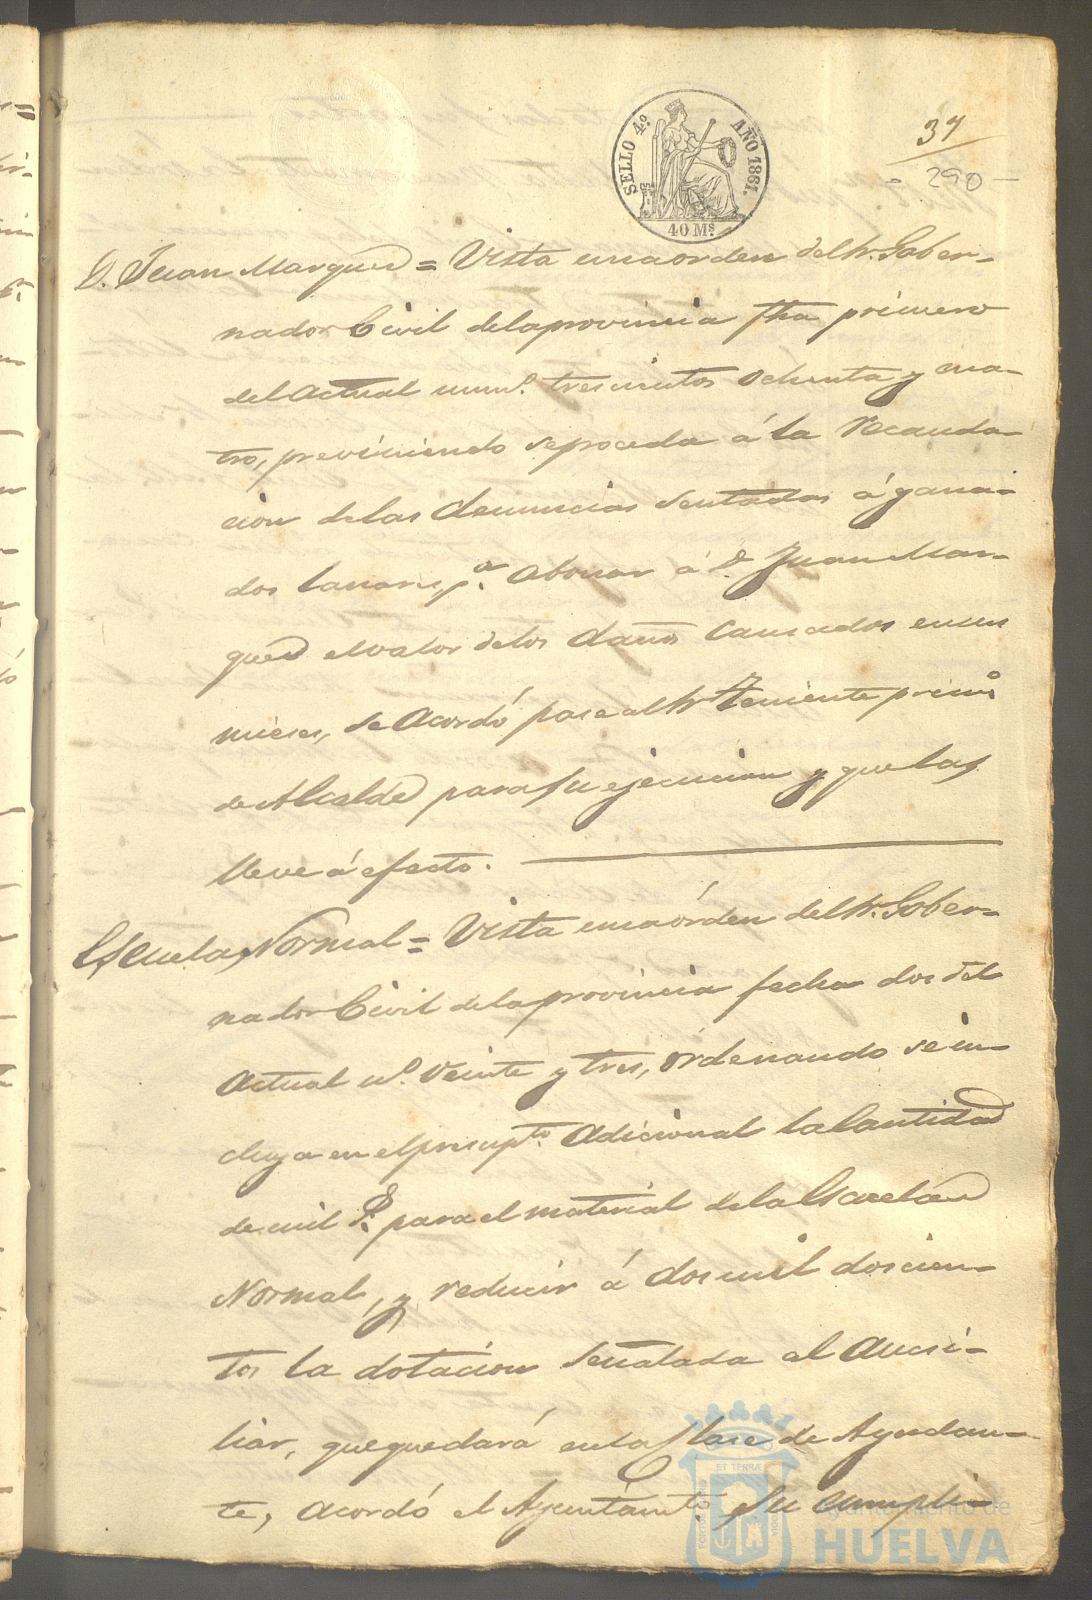 SELLO 4º. AÑO 1861.
40 Ms.
37
- 290 -
D. Juan Marquez = Vista una orden del Sr. Gober-
nador Civil de la provincia fha primero
del actual numº. trescientos ochenta y cua-
tro, previniendo se proceda á la recauda-
cion de las denuncias sentadas á gana-
dos lanares, pª. abonar á D. Juan Mar-
quez el valor de los daños causados en sus
mieses, se acordó pase al Sr. Teniente primº
de Alcalde para su ejecucion y que las
lleve á efecto.
Escuela Normal = Vista una órden del Sr. Gober-
nador Civil de la provincia fecha dos del
actual nº. veinte y tres, ordenando se in-
cluya en el presupto. adicional la Cantidad
de mil rs. para el material de la Escuela
Normal, y reducir á dos mil doscien-
tos la dotacion señalada al ausi-
liar, que quedará en la Clase de Ayudan-
te, acordó el Ayuntamto. su cumpli-
ET TERRÆ
Ayuntamiento de
HUELVA